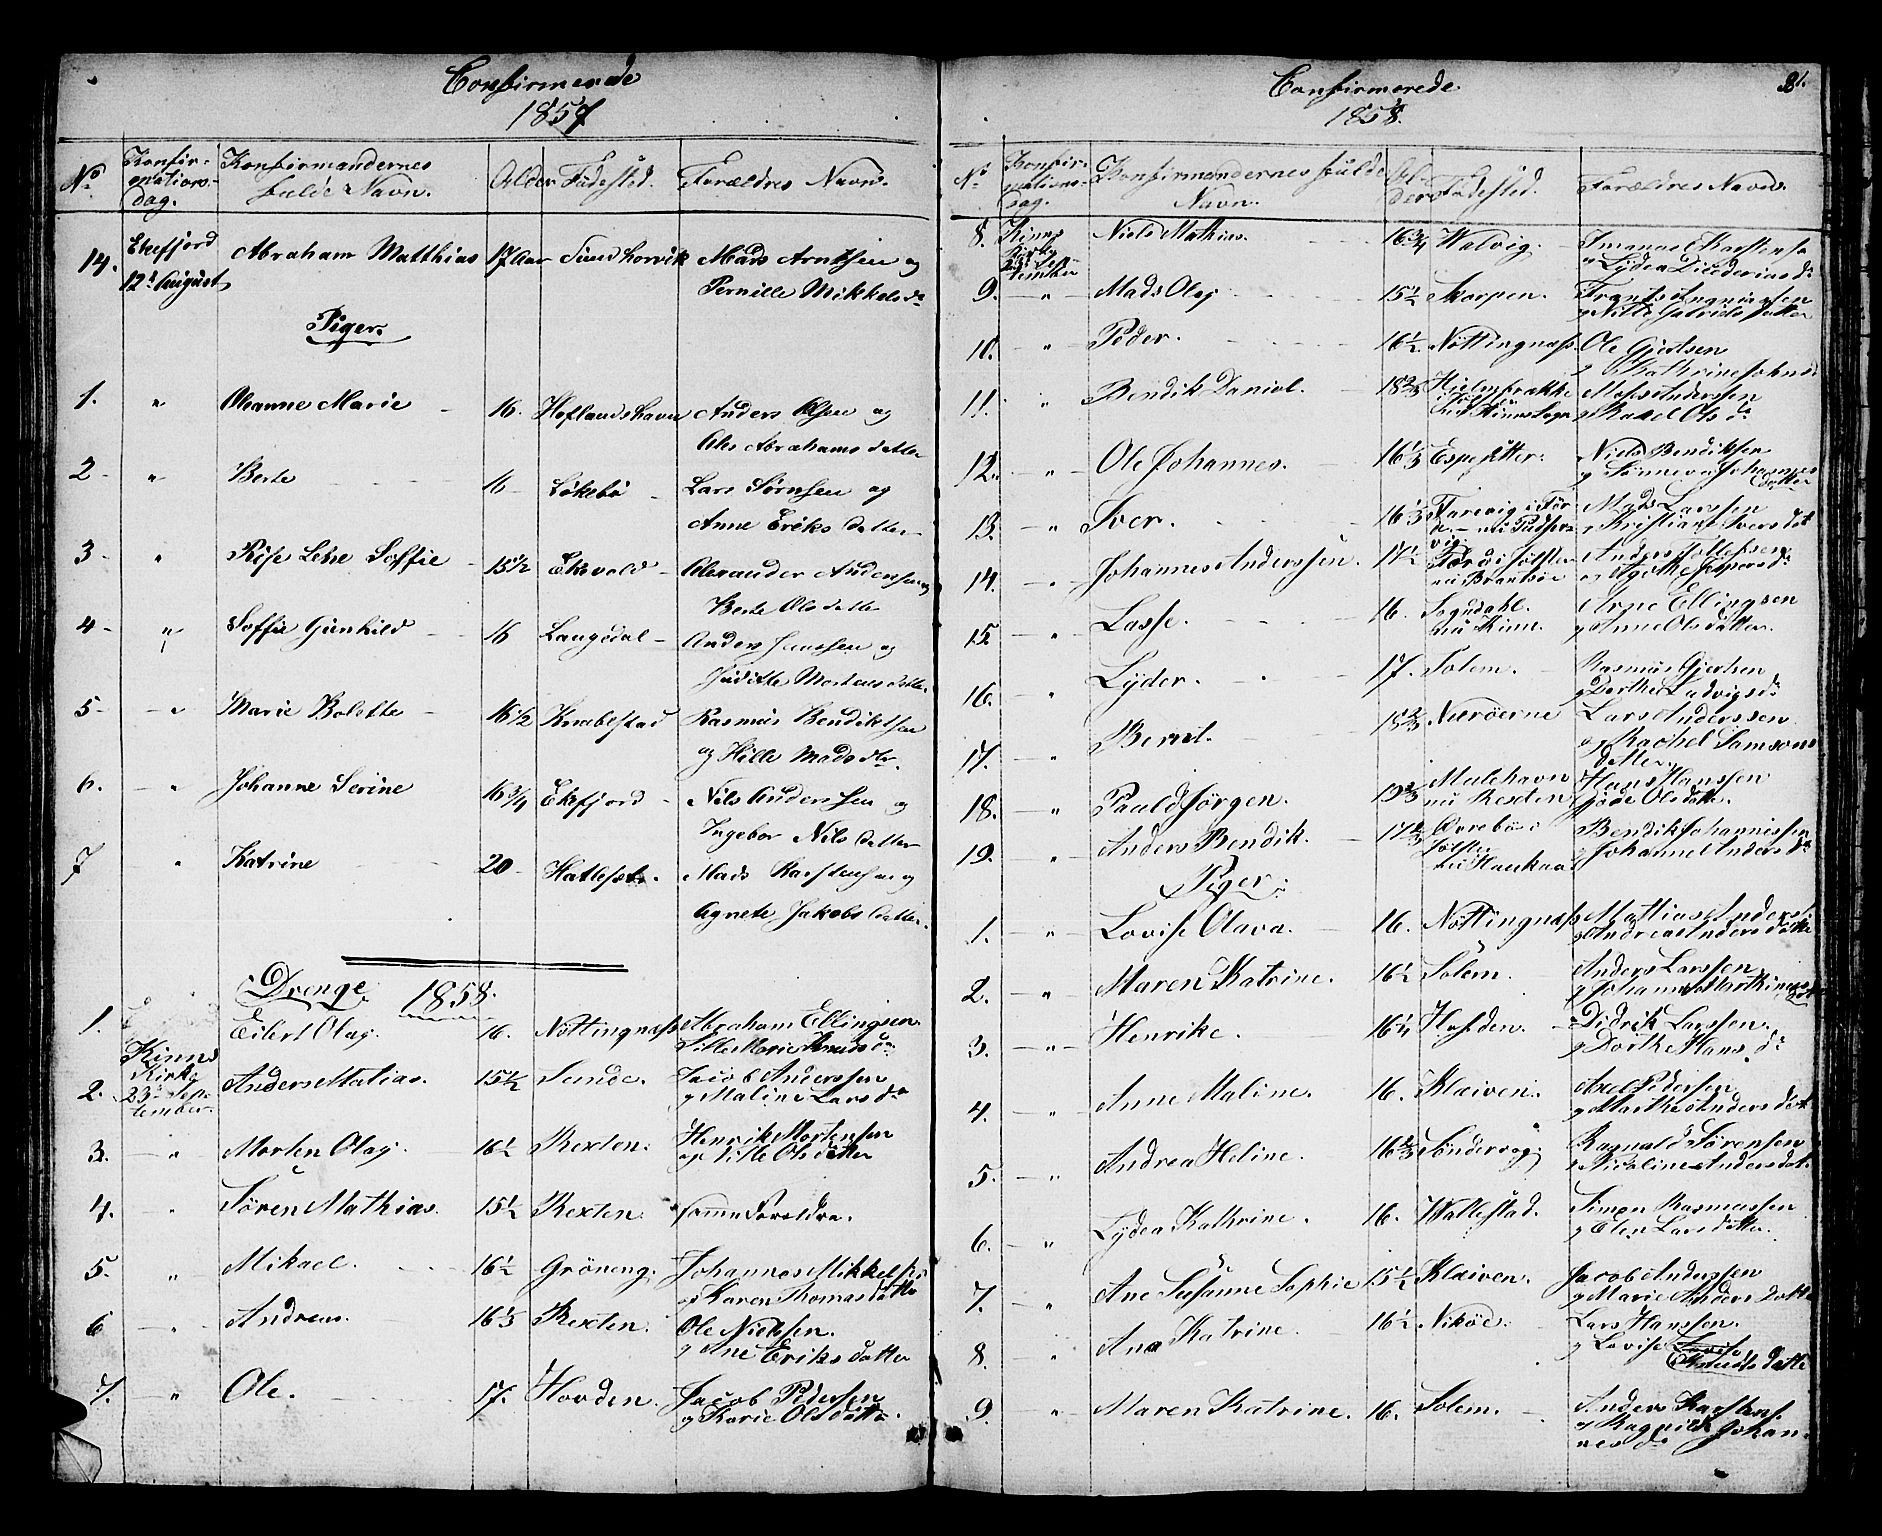 Confirmerede
1857
No
Konfir-
mations-
dag.
Konfirmandernes
fulde Navn.
Alder
Födested.
Forældres Navn.
14. Ekefjord
12te August
Abraham Matthias 17 Aar Sunshorvik Mads Arntsen og
Pernille Mikkelsdr
Piger.
1. " Oleanne Marie - 16. Hoflandshavn Anders Olsen og
Ales Abrahamsdatter
2 - " Berte 16 - Lökebö - Lars Sörnsen og
Anne Eriks datter
3 - " Röse Lene Soffie - 15 1/2 Ekevold - Alexander Andersen og
Berte Olsdatter
4 - " Soffie Gunhild - 16 Langedal - Anders Hanssen og
Juditte Mortensdatter
5 - " Marie Bolette - 16 1/2 Knabestad Rasmus Bendiktsen
og Hille Madsdtr.
6. - " Johanne Serine 16 3/4 Ekefjord - Nils Andersen og
Ingebor Nilsdatter
7 " Katrine 20 - Hatleset. - Mads Karstensen og
Agnete Jakobsdatter
Drenge 1858.
1. Kinns
Kirke
23de Sep-
tember
Eilert Olag. 16. Nöttingnæs Abraham Ellingsen
Sille Marie Knudsdr
2. Anders Matias. 15 1/2 Sunde. Jacob Anderssen
og Maline Larsdr
3. - " Morten Olag. 16 1/2 Rexten. Henrik Mortensen
og Sille Olsdatter
4. " Sören Mathias. 15 1/2 Rexten. samme Foreldre.
5. - " Mikael. 16 1/2 Gröneng. Johannes Mikkels
og Karen Thomasdatter
6 - " Andreas. 16 1/3 Rexten. Ole Nielsen.
og Ane Eriksdatter
7. - " Ole. 17. Hovden. Jacob Pedersen
og Karie Olsdatter.
Confirmerede 81.
1858.
No
Konfir-
mations-
dag.
Konfirmandernes fulde
Navn.
Al-
ders
Födested.
Forældres Navn.
8. Kinns
Kirke
23de Sep-
tember
Niels Mathias. 16 3/4 Walvig. - Karstens
og Lydea Diederiks dr
9. - " Mads Olaj 15 1/2 Skorpen. Frants
10. - " Peder. 16 1/2 Nöttingnæs. Ole Gjertsen
og Kathrine Johns
11. " Bendik Daniel. - 18 2/3 Hjelmbrække
Kinns Sogn
Mons Anderssen
og Rakel Olsdr
12. - " Ole Johannes. - 16 1/3 Espesetter. Niels Bendiksen
og Sönneva Johannes
datter
13. - " Iver. 16 1/3 Farevig i För
de - nu
vig.
Mads Larssen
og Kristiane Iversdat
14. - " Johannes Anderssen. 17 1/2 Förde i Jölster
nu Brandsöe
Anders Tollefsen
og Agothe Jespersdr
15 - " Lasse. 16. Sogndahl.
nu Kinn.
Arne Ellingsen
og Anne Olsdatter.
16. - " Lyder. - 17. Solem. - Rasmus Gjertsen
og Dorthe Ludvigsdr
17. - " Bernt. 18 2/3 Næröerne Lars Anderssen
og Rachel Samsons
datter
18. - " Pauld Jörgen. 19 2/3 Malehavn
nu Rexten
Hans Hanssen
Olsdatter.
19. " Anders Bendik. - 17 2/3 Övreböe i
Jölster
nu Haukaa
Bendik Johannessen
og Johanne Andersdr
Piger:
1. - " Lovise Olava. - 16. Nöttingnæs Mathias Anders
og Andrea Andersdatter
2. - " Maren Katrine. 16 1/2 Solem. Anders Larssen
og Johanne Martinus
dat
3. - " - Henrike. 16 1/4 Hofden. - Didrik Larssen.
og Dorthe Hansdr
4. - " Anne Maline. 16. Klæiven. Axel Pedersen
og Marthe Andersdat
5. - " Andrea Heline. 16 2/3 Söndervog. Ragnald Sörensen
og Nicoline Andersdat.
6. - " Lydea Kathrine. 16. Wallestad. Simon Rasmussen
og Elen Larsdatter.
7. - " Ane Susanne Sophie 15 1/2 Klæiven. Jacob Anderssen
og Marie Anders Datter
8. " Ane Katrine. - 16 1/2 Niköe. - Lars Hanssen.
og Lovise Lovise
datter
9. " Maren Katrine. 16. Solem. - Anders Karstens.
og Ragnild Johan-
nesdr